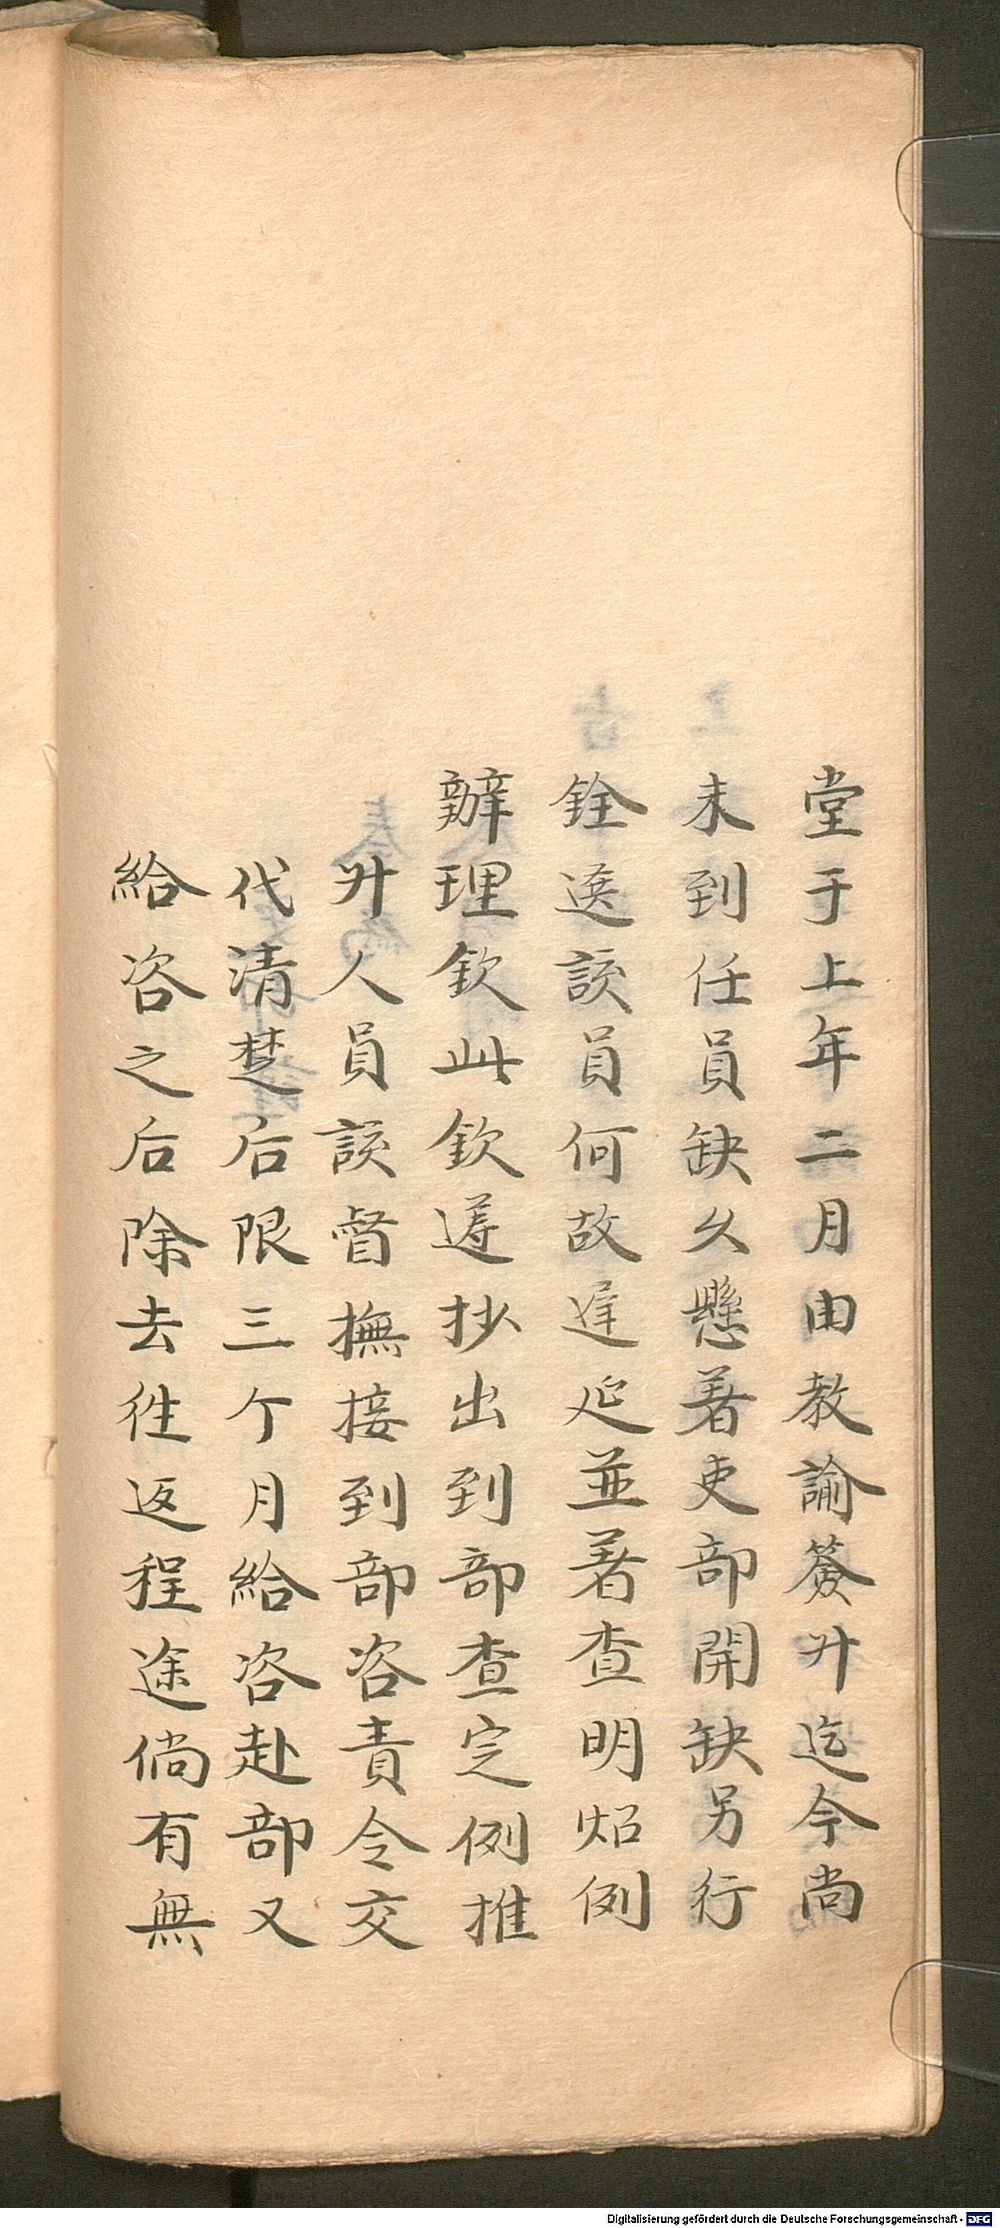 堂于上年二月由教諭簽升迄今尚
未到任員缺久懸著吏部開缺另行
銓選該員何故遲延並著查明炤例
辦理欽此欽遵抄出到部查定例推
升人員該督撫接到部咨責令交
代清楚后限三个月給咨赴部又
給咨之后除去徃返程途倘有無
Digitalisierung gefördert durch die Deutsche Forschungsgemeinschaft - DFG